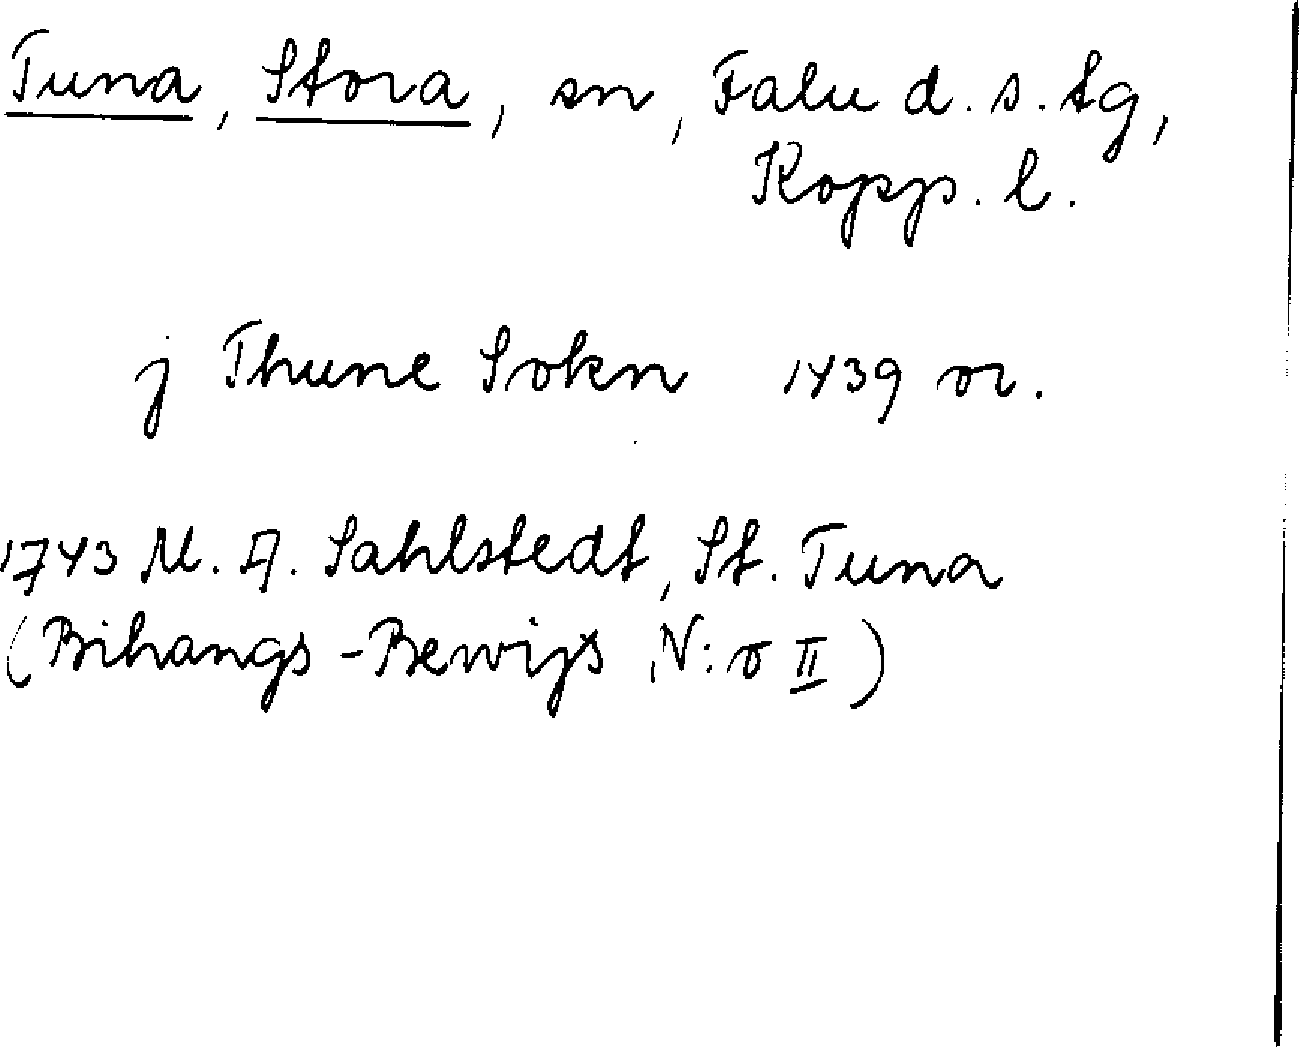 Tuna, Stora, sn, Falu d. s. tg,
Kopp. l.
j Thune Sokn 1439 or.
1743 M. A. Sahlstedt, St. Tuna
(Bihangs-Bewijs N:o II)